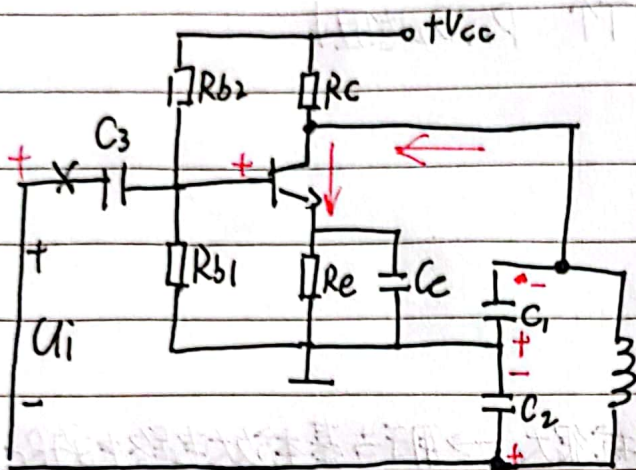 +Vcc
Rb2
Rc
C3
+
×
+
+
Rb1
Re
Ce
-
C1
+
Ui
-
C2
-
+